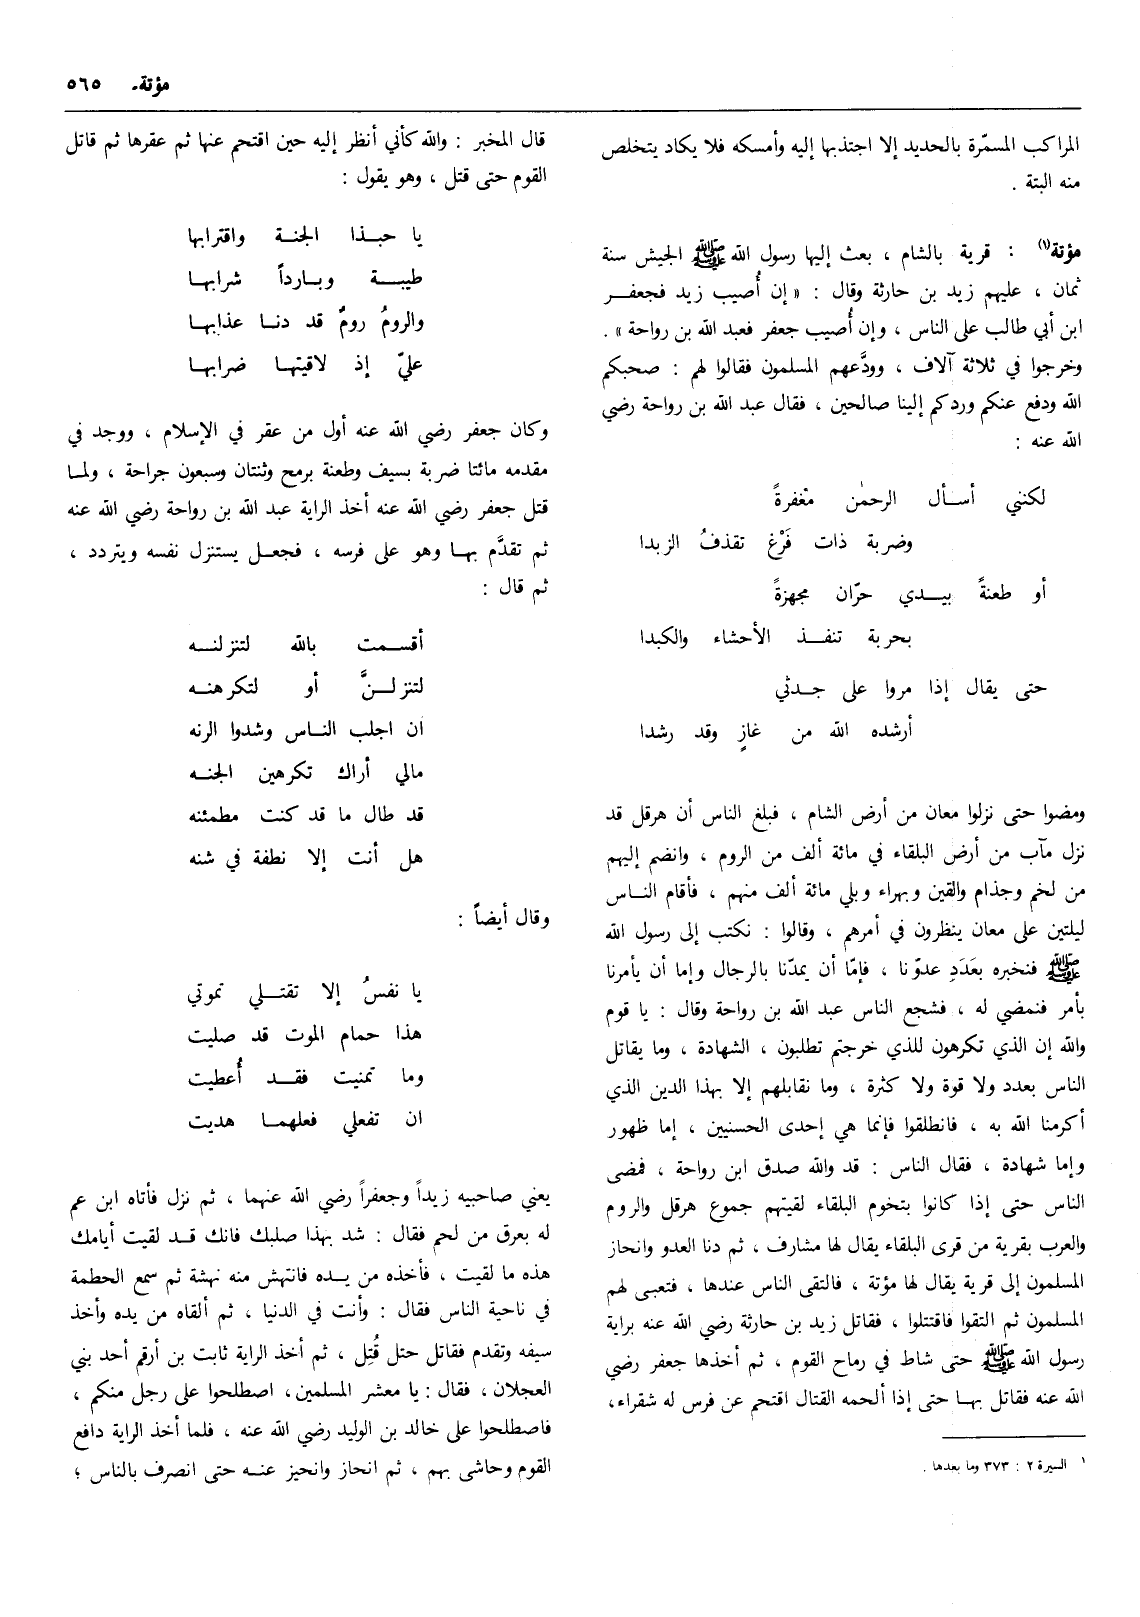 مؤتة. ٥٦٥
المراكب المسمّرة بالحديد إلا اجتذبها إليه وأمسكه فلا يكاد يتخلص
منه البتة .
مؤتة(١) : قرية بالشام ، بعث إليها رسول الله ﷺ الجيش سنة
ثمان ، عليهم زيد بن حارثة وقال : « إن أُصيب زيد فجعفر
ابن أبي طالب على الناس ، وإن أُصيب جعفر فعبد الله بن رواحة » .
وخرجوا في ثلاثة آلاف ، وودَّعهم المسلمون فقالوا لهم : صحبكم
الله ودفع عنكم وردكم إلينا صالحين ، فقال عبد الله بن رواحة رضي
الله عنه :
لكنني أسأل الرحمٰن مغفرةً
وضربة ذات فَرْغ تقذفُ الزبدا
أو طعنةً بيدي حرّان مجهزةً
بحربة تنفذ الأحشاء والكبدا
حتى يقال إذا مروا على جدثي
أرشده الله من غازٍ وقد رشدا
ومضوا حتى نزلوا معان من أرض الشام ، فبلغ الناس أن هرقل قد
نزل مآب من أرض البلقاء في مائة ألف من الروم ، وانضم إليهم
من لخم وجذام والقين وبهراء وبلي مائة ألف منهم ، فأقام الناس
ليلتين على معان ينظرون في أمرهم ، وقالوا : نكتب إلى رسول الله
ﷺ فنخبره بعَدَدِ عدوّنا ، فإمّا أن يمدّنا بالرجال وإما أن يأمرنا
بأمر فنمضي له ، فشجع الناس عبد الله بن رواحة وقال : يا قوم
والله إن الذي تكرهون للذي خرجتم تطلبون ، الشهادة ، وما يقاتل
الناس بعدد ولا قوة ولا كثرة ، وما نقابلهم إلا بهذا الدين الذي
أكرمنا الله به ، فانطلقوا فإنما هي إحدى الحسنيين ، إما ظهور
وإما شهادة ، فقال الناس : قد والله صدق ابن رواحة ، فمضى
الناس حتى إذا كانوا بتخوم البلقاء لقيتهم جموع هرقل والروم
والعرب بقرية من قرى البلقاء يقال لها مشارف ، ثم دنا العدو وانحاز
المسلمون إلى قرية يقال لها مؤتة ، فالتقى الناس عندها ، فتعبى لهم
المسلمون ثم التقوا فاقتتلوا ، فقاتل زيد بن حارثة رضي الله عنه براية
رسول الله ﷺ حتى شاط في رماح القوم ، ثم أخذها جعفر رضي
الله عنه فقاتل بها حتى إذا ألحمه القتال اقتحم عن فرس له شقراء،
١ السيرة ٢ : ٣٧٣ وما بعدها .
قال المخبر : والله كأني أنظر إليه حين اقتحم عنها ثم عقرها ثم قاتل
القوم حتى قتل ، وهو يقول :
يا حبذا الجنة واقترابها
طيبة وبارداً شرابها
والرومُ رومٌ قد دنا عذابها
عليّ إذ لاقيتها ضرابها
وكان جعفر رضي الله عنه أول من عقر في الإسلام ، ووجد في
مقدمه مائتا ضربة بسيف وطعنة برمح وثنتان وسبعون جراحة ، ولما
قتل جعفر رضي الله عنه أخذ الراية عبد الله بن رواحة رضي الله عنه
ثم تقدَّم بها وهو على فرسه ، فجعل يستنزل نفسه ويتردد ،
ثم قال :
أقسمت بالله لتنزلنه
لتنزلنَّ أو لتكرهنه
ان اجلب الناس وشدوا الرنه
مالي أراك تكرهين الجنه
قد طال ما قد كنت مطمئنه
هل أنت إلا نطفة في شنه
وقال أيضاً :
يا نفسُ إلا تقتلي تموتي
هذا حمام الموت قد صليت
وما تمنيت فقد أُعطيت
ان تفعلي فعلهما هديت
يعني صاحبيه زيداً وجعفراً رضي الله عنهما ، ثم نزل فأتاه ابن عم
له بعرق من لحم فقال : شد بهذا صلبك فانك قد لقيت أيامك
هذه ما لقيت ، فأخذه من يده فانتهش منه نهشة ثم سمع الحطمة
في ناحية الناس فقال : وأنت في الدنيا ، ثم ألقاه من يده وأخذ
سيفه وتقدم فقاتل حتل قُتِل ، ثم أخذ الراية ثابت بن أرقم أحد بني
العجلان ، فقال : يا معشر المسلمين، اصطلحوا على رجل منكم ،
فاصطلحوا على خالد بن الوليد رضي الله عنه ، فلما أخذ الراية دافع
القوم وحاشى بهم ، ثم انحاز وانحيز عنه حتى انصرف بالناس ؛